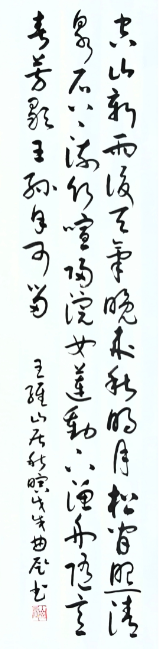 空山新雨後天氣晚來秋明月松間照清
泉石上流竹喧歸浣女蓮動下漁舟隨意
春芳歇王孫自可留
王維山居秋暝